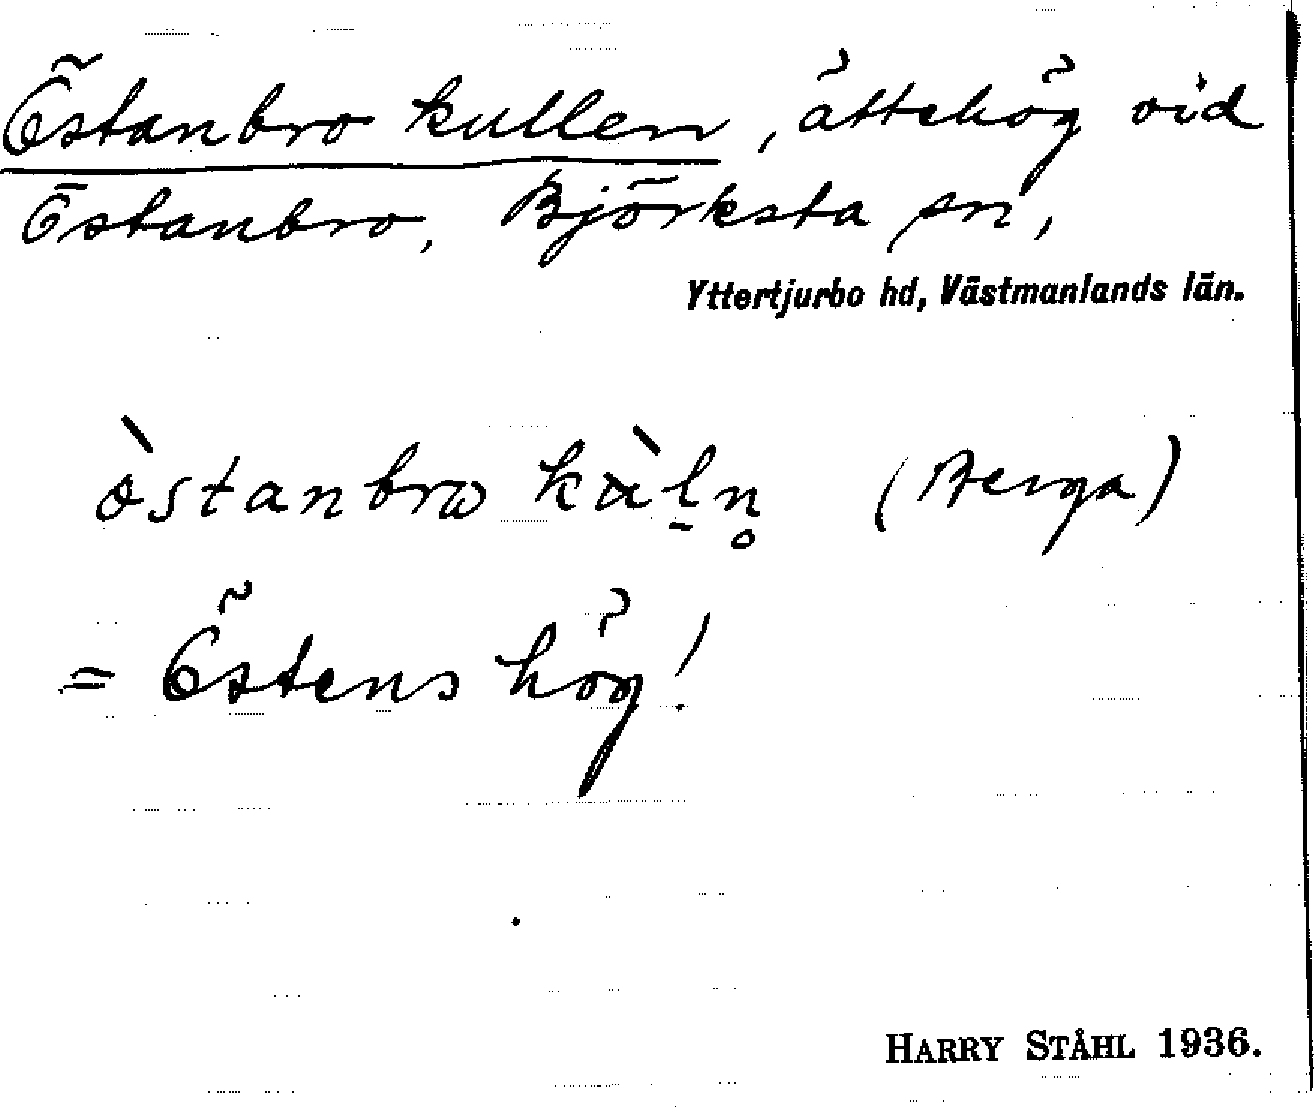 Östanbro kullen, ättehög vid
Östanbro, Björksta sn,
Yttertjurbo hd, Västmanlands län.
östanbro
= Östens hög!
HARRY STÅHL 1936.